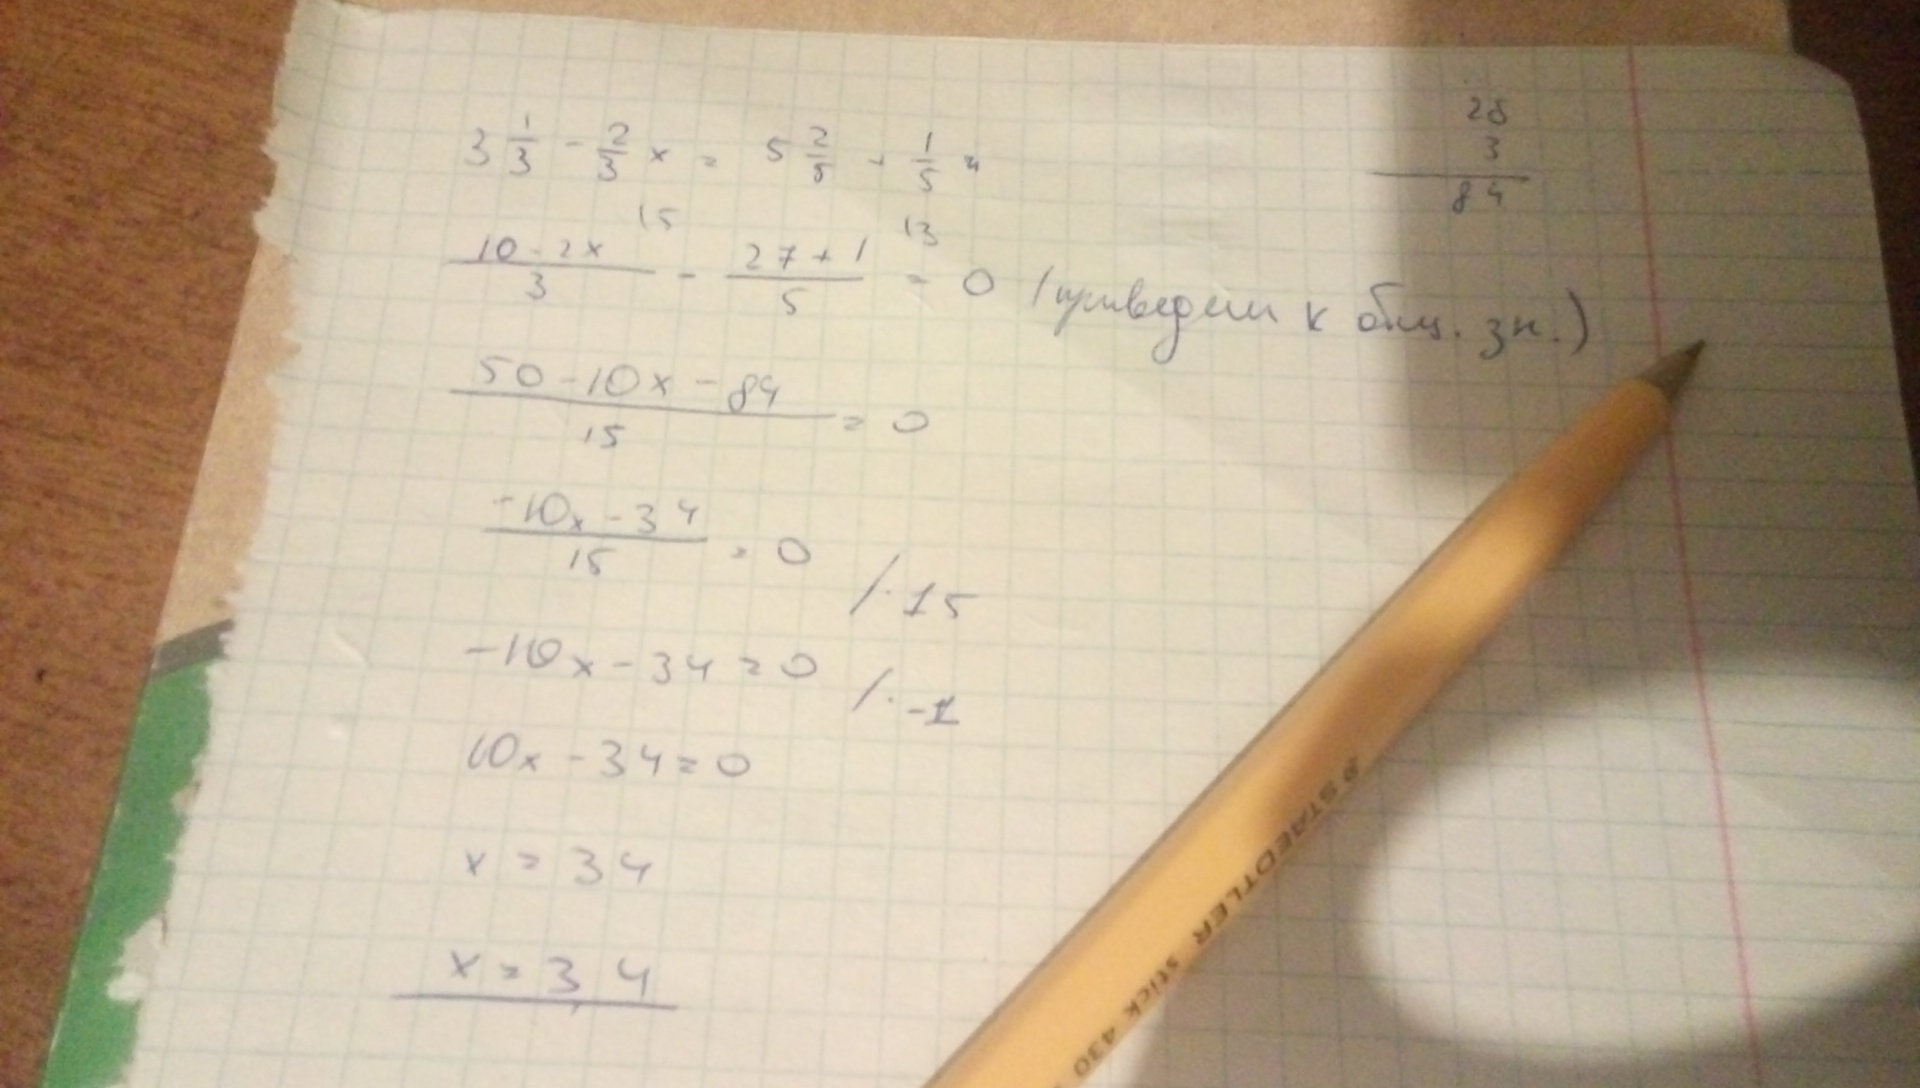 3 1/3 - 2/3 x = 5 2/5 - 1/5 x
28
3
84
15 13
10-2x/3 - 27+1/5 = 0 (приведем к общ. зн.)
50-10x-84/15 = 0
-10x-34/15 = 0 /·15
-10x-34=0 /·-1
10x-34=0
x = 34
x = 3,4
STAEDTLER stick 430